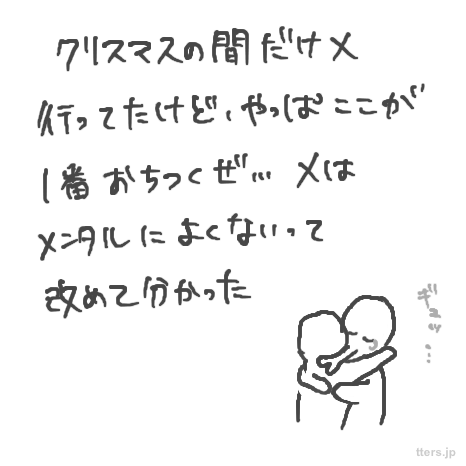 クリスマスの間だけX
行ってたけど、やっぱここが
1番おちつくぜ… Xは
メンタルによくないって
改めて分かった
ギュッ…
tters.jp